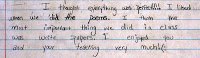 I thought everything was perfect!! I liked
when we did the poems. I think the
most important thing we did in class
was write papers. I enjoyed you
and your teaching very much!!